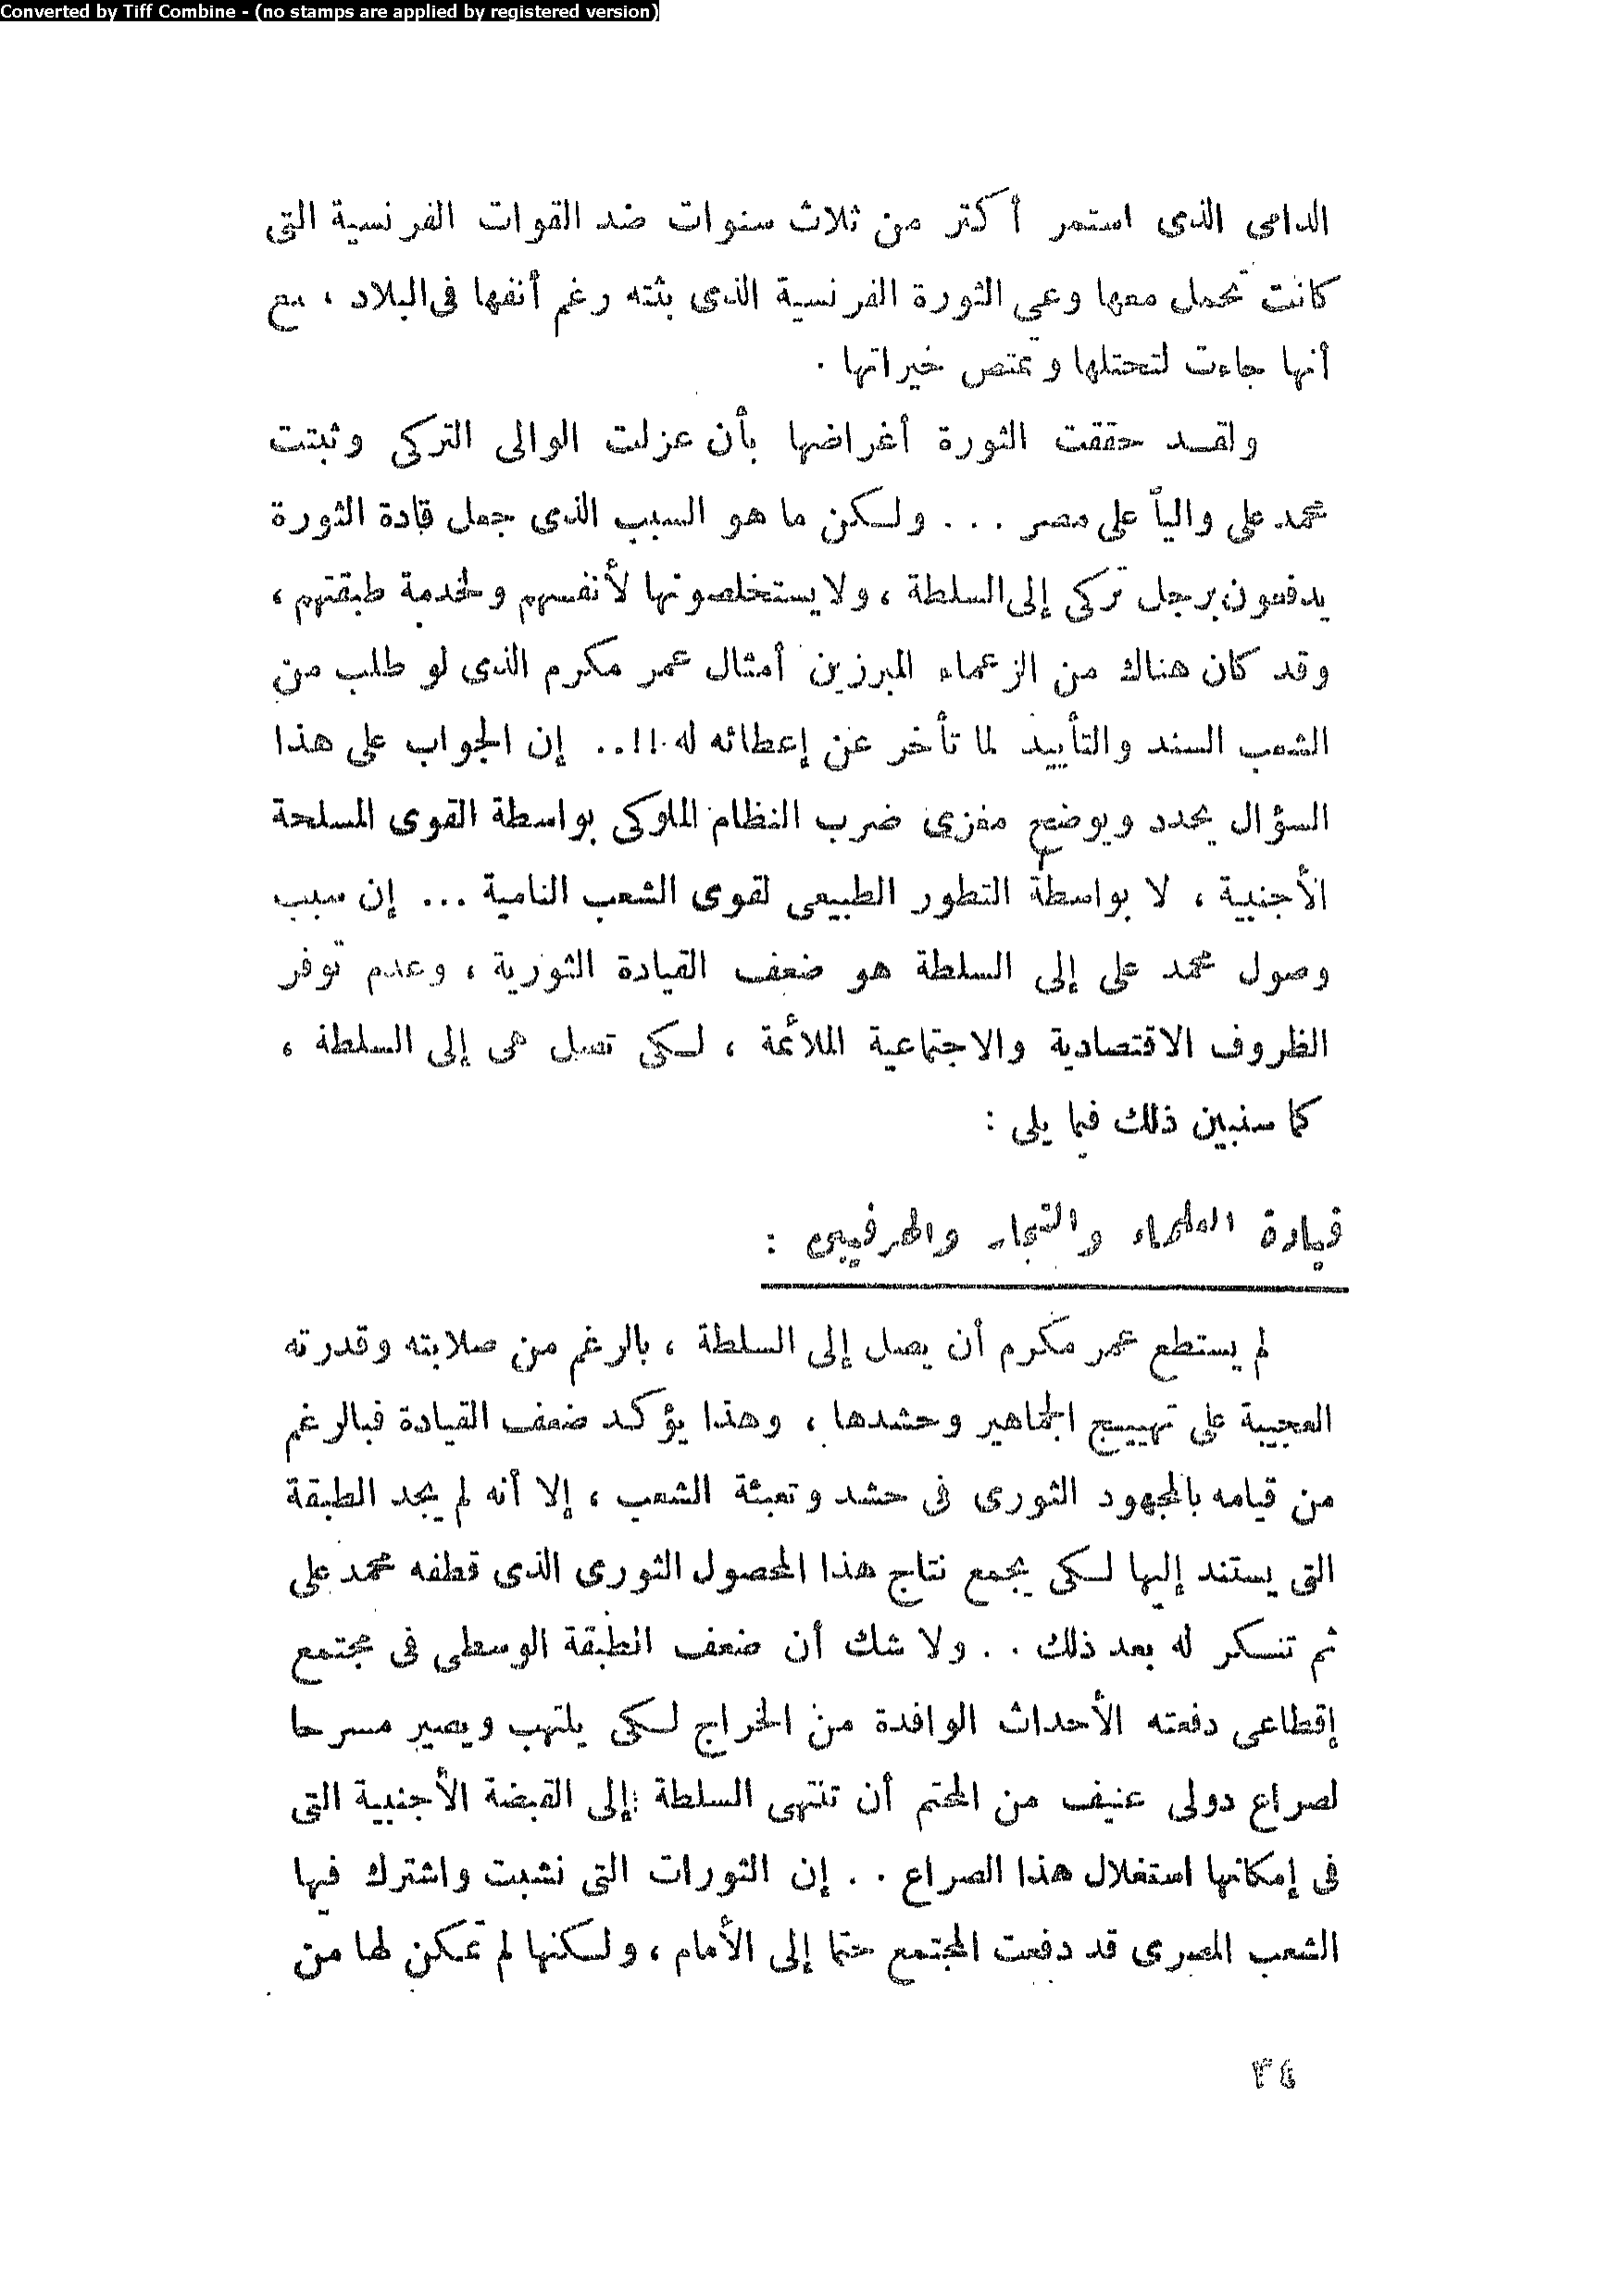 Converted by Tiff Combine - (no stamps are applied by registered version)
الدامى الذى استمر أكثر من ثلاث سنوات ضد القوات الفرنسية التى
كانت تحمل معها وعى الثورة الفرنسية الذى بثته رغم أنفها فى البلاد ، مع
أنها جاءت لتحتلها وتمتص خيراتها .
ولقد حققت الثورة أغراضها بأن عزلت الوالى التركى وثبتت
محمد على والياً على مصر . . . ولكن ما هو السبب الذى جعل قادة الثورة
يدفعون برجل تركى إلى السلطة ، ولا يستخلصونها لأنفسهم ولخدمة طبقتهم ،
وقد كان هناك من الزعماء المبرزين أمثال عمر مكرم الذى لو طلب من
الشعب السند والتأييد لما تأخر عن إعطائه له !!.. إن الجواب على هذا
السؤال يحدد ويوضح مغزى ضرب النظام المملوكى بواسطة القوى المسلحة
الأجنبية ، لا بواسطة التطور الطبيعى لقوى الشعب النامية ... إن سبب
وصول محمد على إلى السلطة هو ضعف القيادة الثورية ، وعدم توفر
الظروف الاقتصادية والاجتماعية الملائمة ، لكى تصل هى إلى السلطة ،
كما سنبين ذلك فيما يلى :
قيادة العلماء والتجار والحرفيين :
لم يستطع عمر مكرم أن يصل إلى السلطة ، بالرغم من صلابته وقدرته
العجيبة على تهييج الجماهير وحشدها ، وهذا يؤكد ضعف القيادة فبالرغم
من قيامه بالمجهود الثورى فى حشد وتعبئة الشعب ، إلا أنه لم يجد الطبقة
التى يستند إليها لكى يجمع نتاج هذا المحصول الثورى الذى قطفه محمد على
ثم تنكر له بعد ذلك . . ولا شك أن ضعف الطبقة الوسطى فى مجتمع
إقطاعى دفعته الأحداث الوافدة من الخراج لكى يلتهب ويصير مسرحا
لصراع دولى عنيف من المحتم أن تنتهى السلطة إلى القبضة الأجنبية التى
فى إمكانها استغلال هذا الصراع . . إن الثورات التى نشبت واشترك فيها
الشعب المصرى قد دفعت المجتمع حتما إلى الأمام ، ولكنها لم تمكن لها من
٣٤